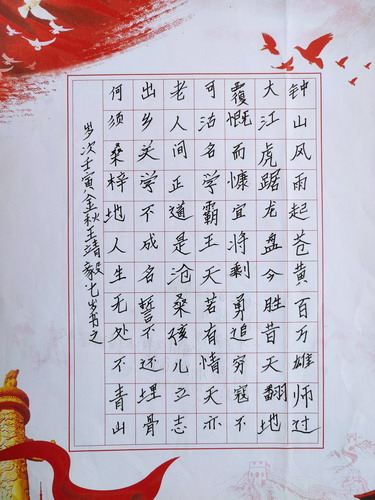 钟山风雨起苍黄百万雄师过
大江虎踞龙盘今胜昔天翻地
覆慨而慷宜将剩勇追穷寇不
可沽名学霸王天若有情天亦
老人间正道是沧桑孩儿立志
出乡关学不成名誓不还埋骨
何须桑梓地人生无处不青山
岁次壬寅金秋王靖毅七岁书之